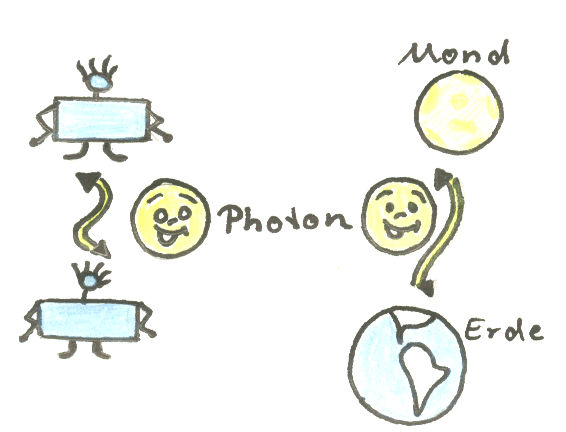 Mond
Photon
Erde